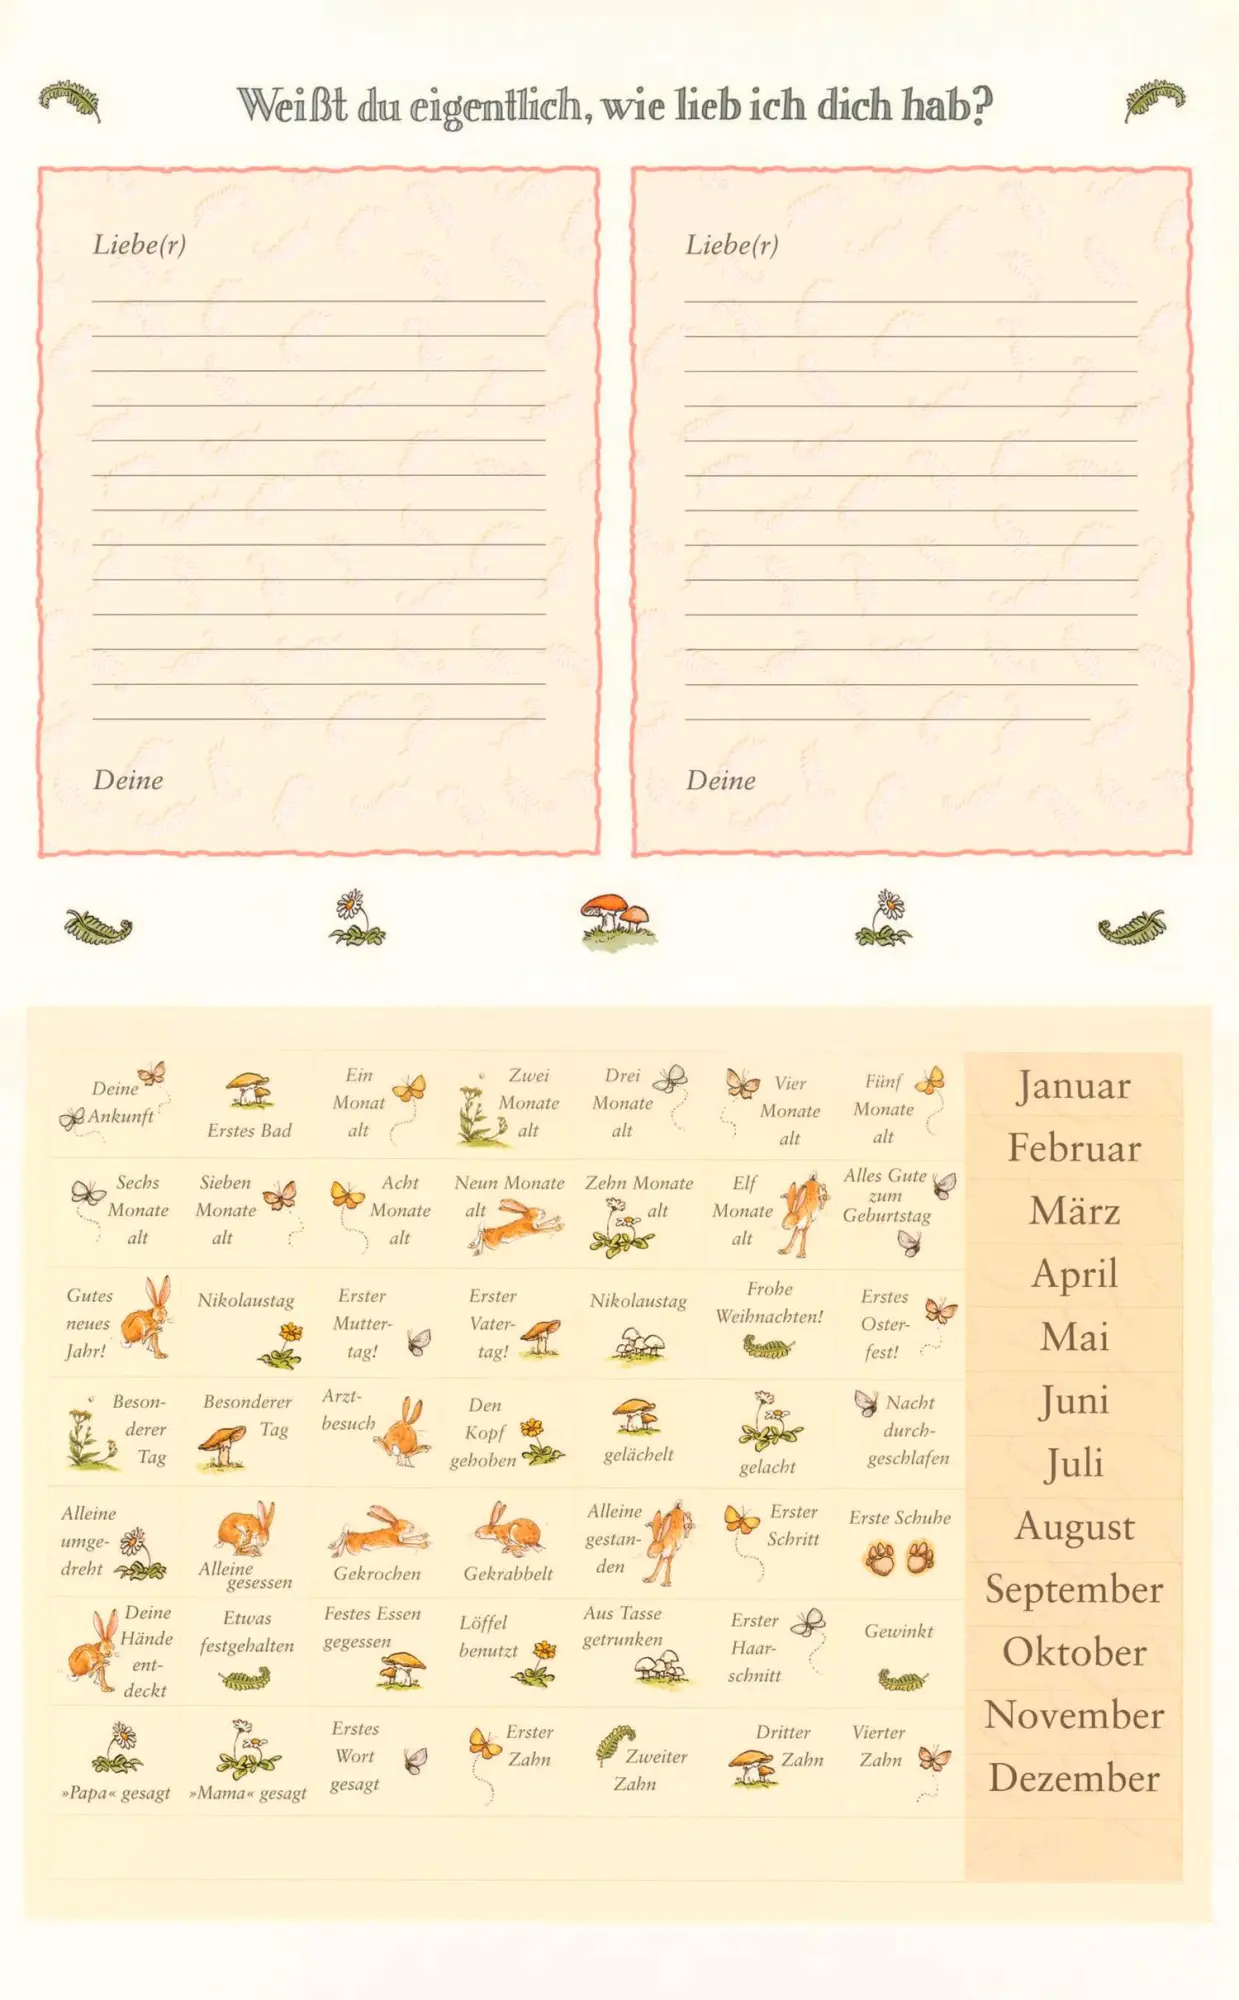 Weißt du eigentlich, wie lieb ich dich hab?
Liebe(r)
Deine
Liebe(r)
Deine
Deine
Ankunft
Erstes Bad
Ein
Monat
alt
Zwei
Monate
alt
Drei
Monate
alt
Vier
Monate
alt
Fünf
Monate
alt
Sechs
Monate
alt
Sieben
Monate
alt
Acht
Monate
alt
Neun Monate
alt
Zehn Monate
alt
Elf
Monate
alt
Alles Gute
zum
Geburtstag
Gutes
neues
Jahr!
Nikolaustag
Erster
Mutter-
tag!
Erster
Vater-
tag!
Nikolaustag
Frohe
Weihnachten!
Erstes
Oster-
fest!
Beson-
derer
Tag
Besonderer
Tag
Arzt-
besuch
Den
Kopf
gehoben
gelächelt
gelacht
Nacht
durch-
geschlafen
Alleine
umge-
dreht
Alleine
gesessen
Gekrochen
Gekrabbelt
Alleine
gestan-
den
Erster
Schritt
Erste Schuhe
Deine
Hände
ent-
deckt
Etwas
festgehalten
Festes Essen
gegessen
Löffel
benutzt
Aus Tasse
getrunken
Erster
Haar-
schnitt
Gewinkt
»Papa« gesagt
»Mama« gesagt
Erstes
Wort
gesagt
Erster
Zahn
Zweiter
Zahn
Dritter
Zahn
Vierter
Zahn
Januar
Februar
März
April
Mai
Juni
Juli
August
September
Oktober
November
Dezember